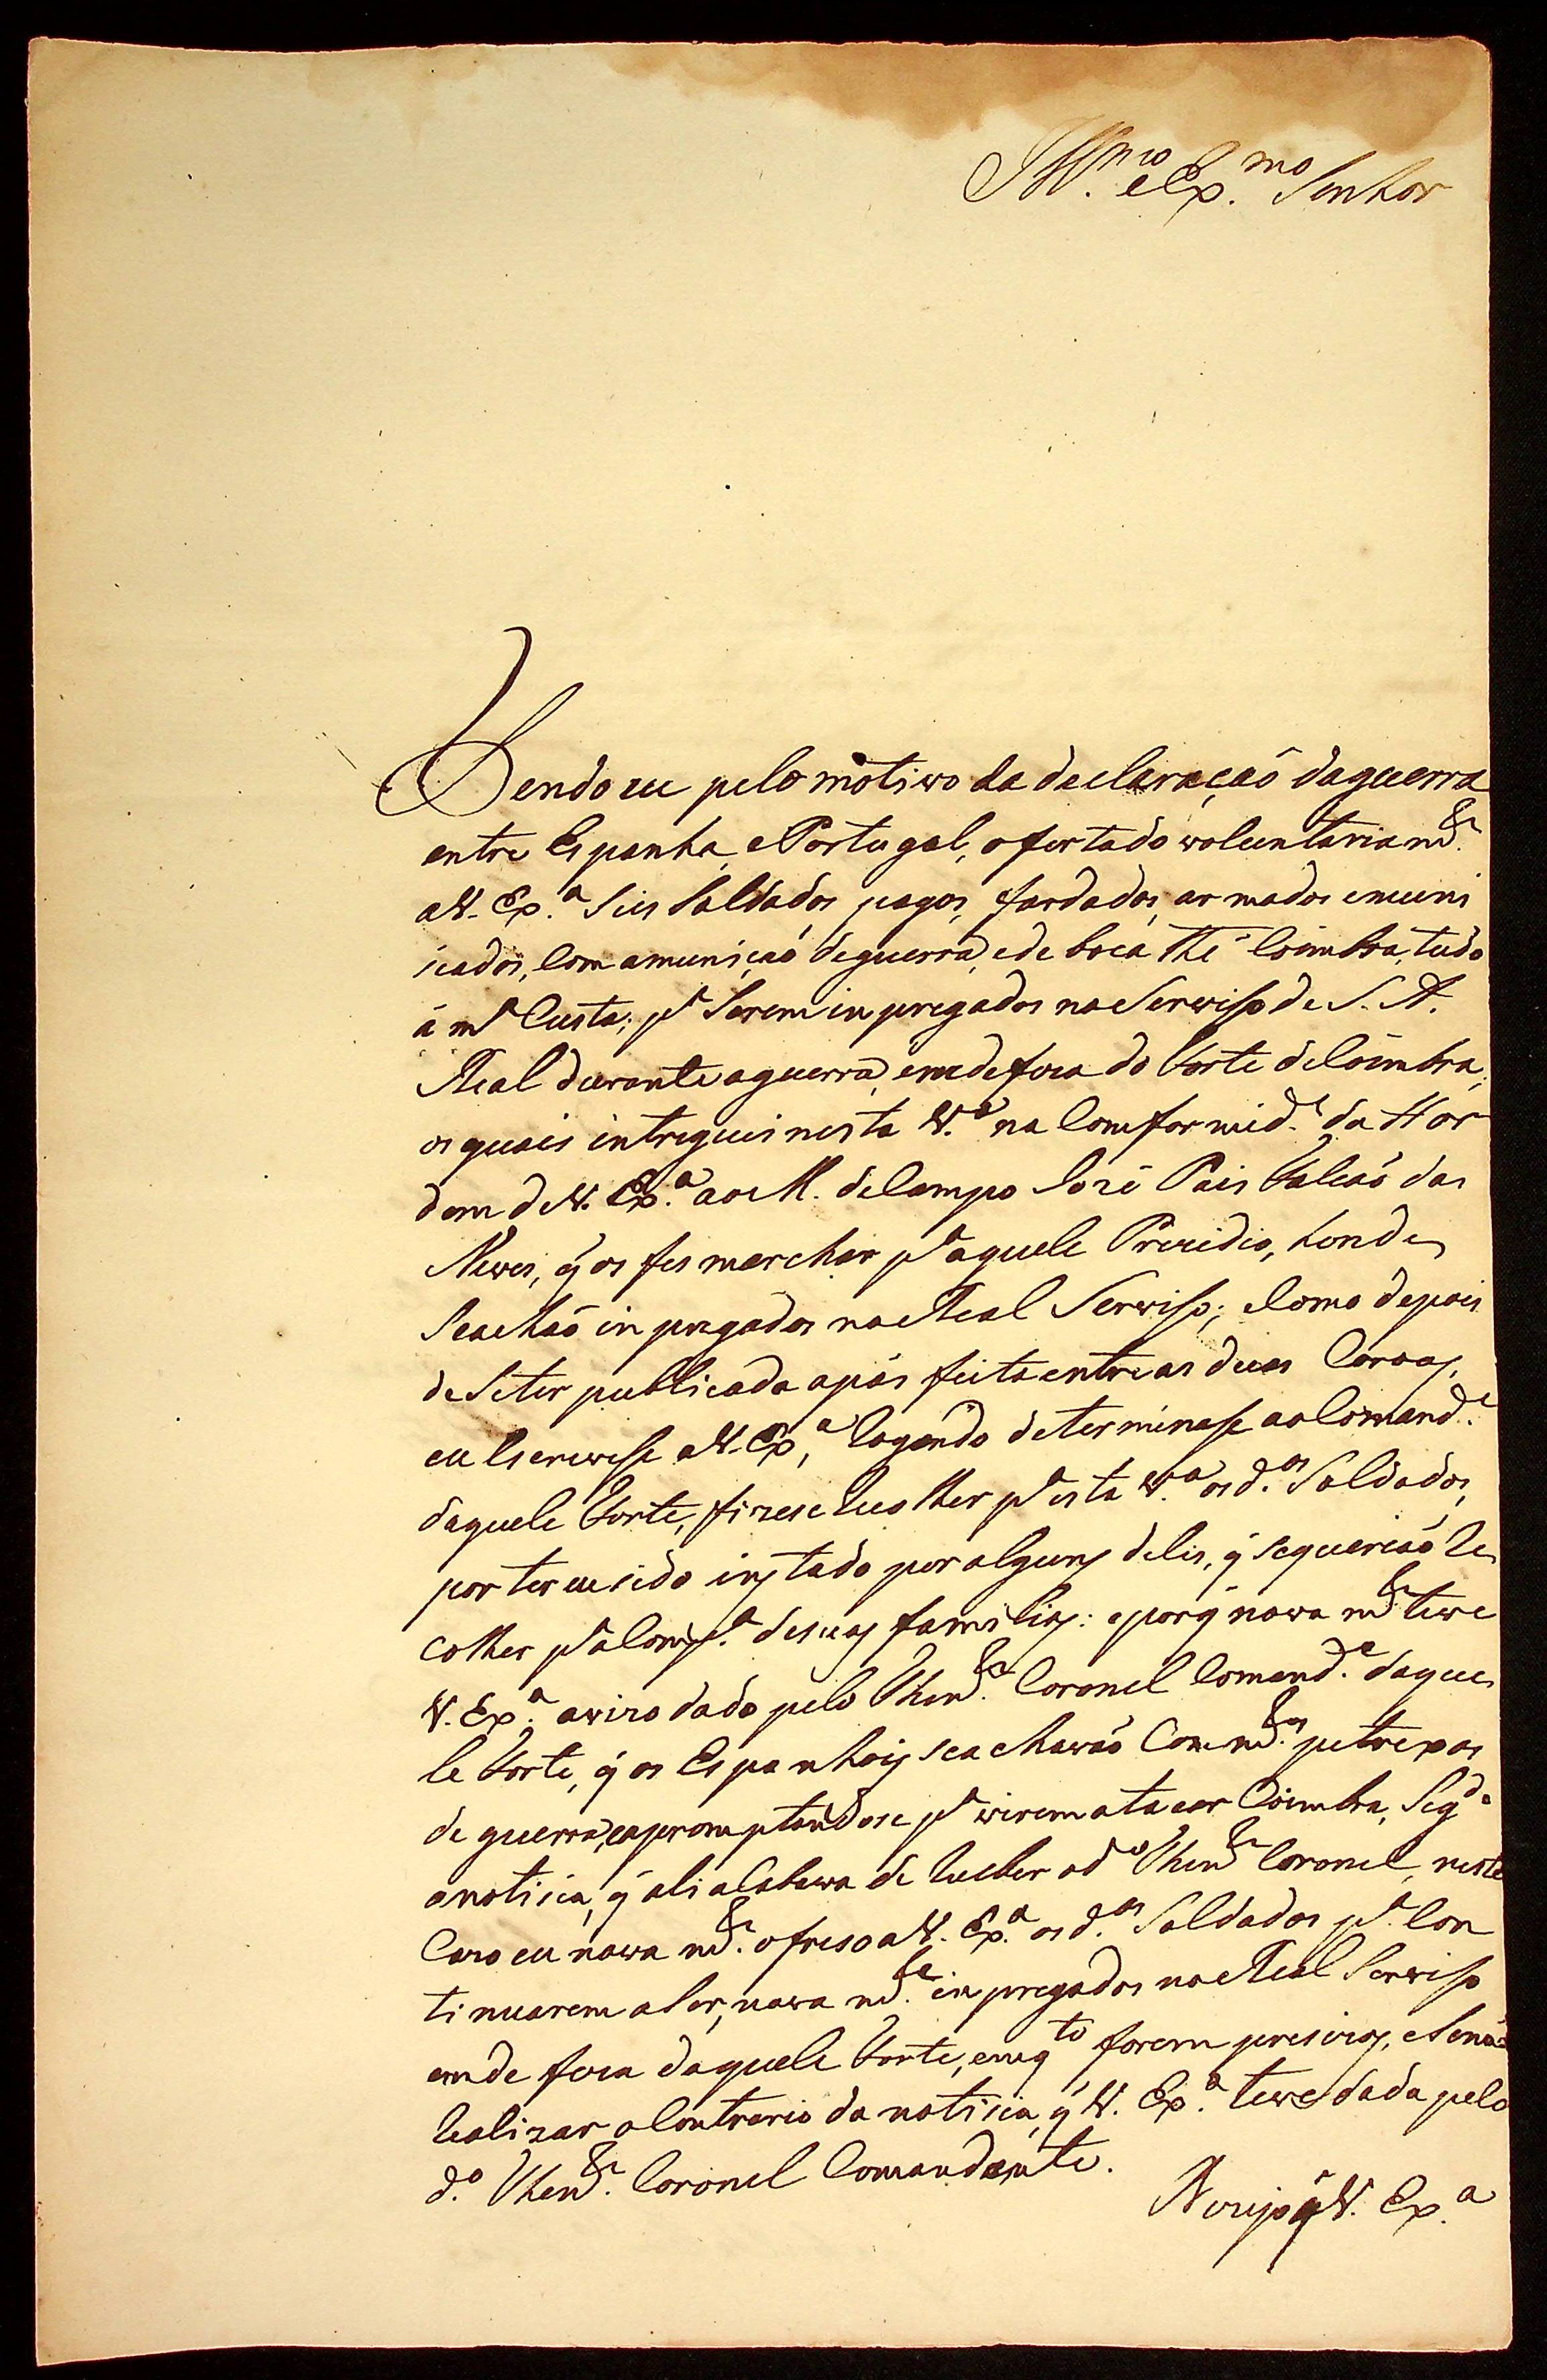 Ill.mo e Ex.mo Senhor
Tendo eu pelo motivo da declaraçaõ da guerra
entre Espanha, e Portugal, ofertado voluntariam.te
a V. Ex.a Seis Soldados pagos, fardados, armados e muni
ciados, Com a muniçaõ de guerra, e de boca thé Coimbra, tudo
á m.a Custa; p.a Serem inpregados no Serviso de S. A.
Real durante a guerra, em defeza do Forte de Coimbra,
os quais intreguei nesta V.a na Comformid.e da Hor
dem de V. Ex.a ao M. de Campo Jozé Pais Falcaõ das
Neves, q̃ os fes marchar p.a aquele Prezidio, honde
Se achaõ inpregados no Real Serviso; e Como depois
de Se ter publicada a pás feita entre as duas Coroas,
eu Escrevese a V. Ex.a, Rogando determinase ao Comand.e
daquele Forte, fizese Recolher p.a esta V.a os d.os Soldados,
por ter eu sido instado por alguns deles, q̃ se queriaõ Re
colher p.a a Comp.a de suas familias: e porq̃ novam.te teve
V. Ex.a avizo dado pelo Then.te Coronel Comand.e daque
le Forte, q̃ os Espanhois se achavaõ Com m.tos petrexos
de guerra, e apromptandose p.a virem atacar Coimbra, Seg.do
a noticia, q̃ ali acabava de Receber o d.o Then.te Coronel, neste
Cazo eu novam.te ofreso a V. Ex.a os d.os Soldados p.a Con
tinuarem a Ser, novam.te inpregados no Real Serviso
em defeza daquele Forte, emq.to forem precizos, e Se naõ
Realizar o Contrario da noticia, q̃ V. Ex.a teve dada pelo
d.o Then.te Coronel Comandante.
q̃ V. Ex.a